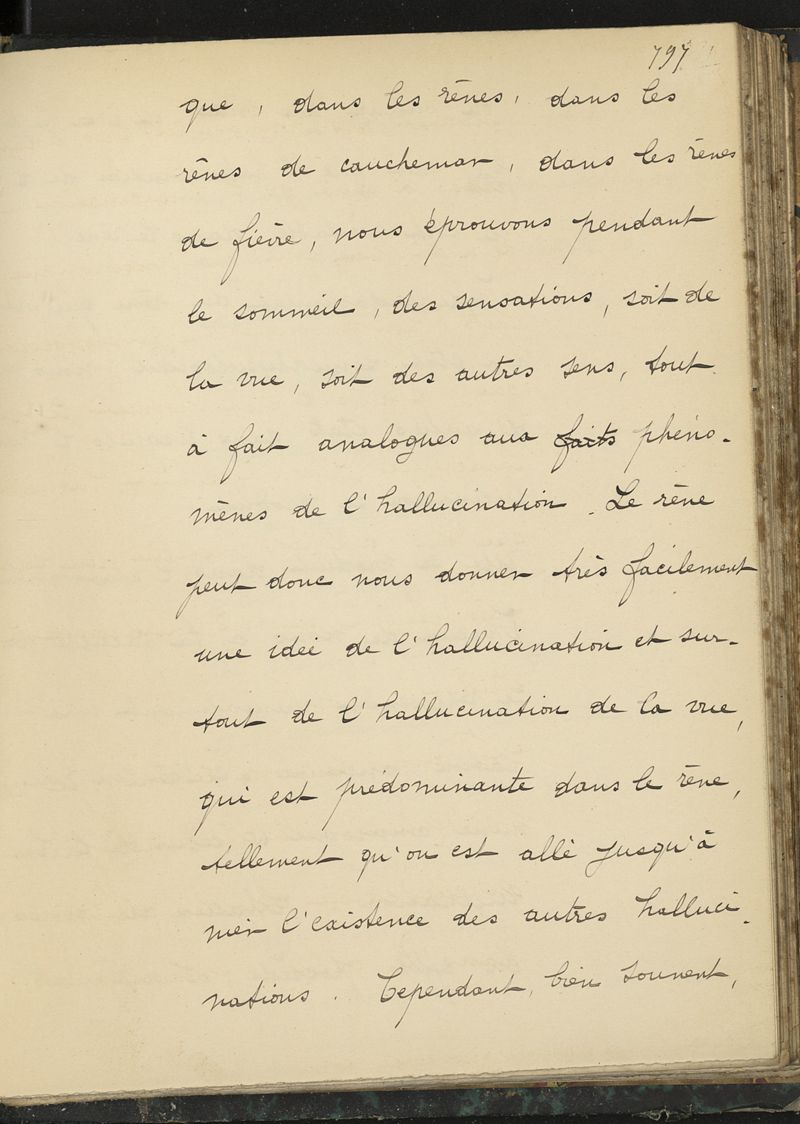 797
que, dans les rêves, dans les
rêves de cauchemar, dans les rêves
de fièvre, nous éprouvons pendant
le sommeil, des sensations, soit de
la vue, soit des autres sens, tout
à fait analogues aux faits phéno-
mènes de l'hallucination. Le rêve
peut donc nous donner très facilement
une idée de l'hallucination et sur-
tout de l'hallucination de la vue,
qui est prédominante dans le rêve,
tellement qu'on est allé jusqu'à
nier l'existence des autres halluci-
nations. Cependant, bien souvent,